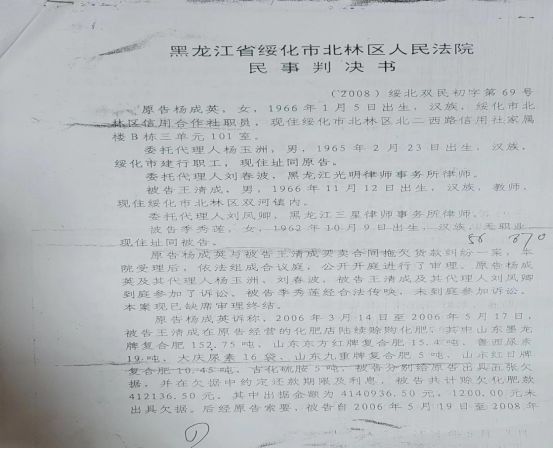 黑龙江省绥化市北林区人民法院
民事判决书
(2008)绥北双民初字第69号
原告杨成英,女,1966年1月5日出生,汉族,绥化市北
林区信用合作社职员,现住绥化市北林区北二西路信用社家属
楼B栋三单元101室。
委托代理人杨玉洲,男,1965年2月23日出生,汉族,
绥化市建行职工,现住址同原告。
委托代理人刘春波,黑龙江光明律师事务所律师。
被告王清成,男,1966年11月12日出生,汉族,教师,
现住绥化市北林区双河镇内。
委托代理人刘凤卿,黑龙江三星律师事务所律师。
被告季秀莲,女,1962年10月9日出生,汉族,无职业,
现住址同被告。
原告杨成英与被告王清成买卖合同拖欠货款纠纷一案,本
院受理后,依法组成合议庭,公开开庭进行了审理。原告杨成
英及其代理人杨玉洲、刘春波,被告王清成及其代理人刘凤卿
到庭参加了诉讼,被告季秀莲经合法传唤,未到庭参加诉讼。
本案现已缺席审理终结。
原告杨成英诉称,2006年3月14日至2006年5月17日,
被告王清成在原告经营的化肥店陆续赊购化肥,其中山东墨龙
牌复合肥152.75吨、山东东方红牌复合肥15.4吨、鲁西尿素
19吨、大庆尿素16袋、山东九重牌复合肥5吨、山东红日牌
复合肥10.45吨、吉化硫胺5吨,被告分别给原告出具五张欠
据,并在欠据中约定还款期限及利息,被告共计赊欠化肥款
412136.50元,其中出据金额为4140936.50元,1200.00元未
出具欠据。后经原告索要,被告自2006年5月19日至2008年
①